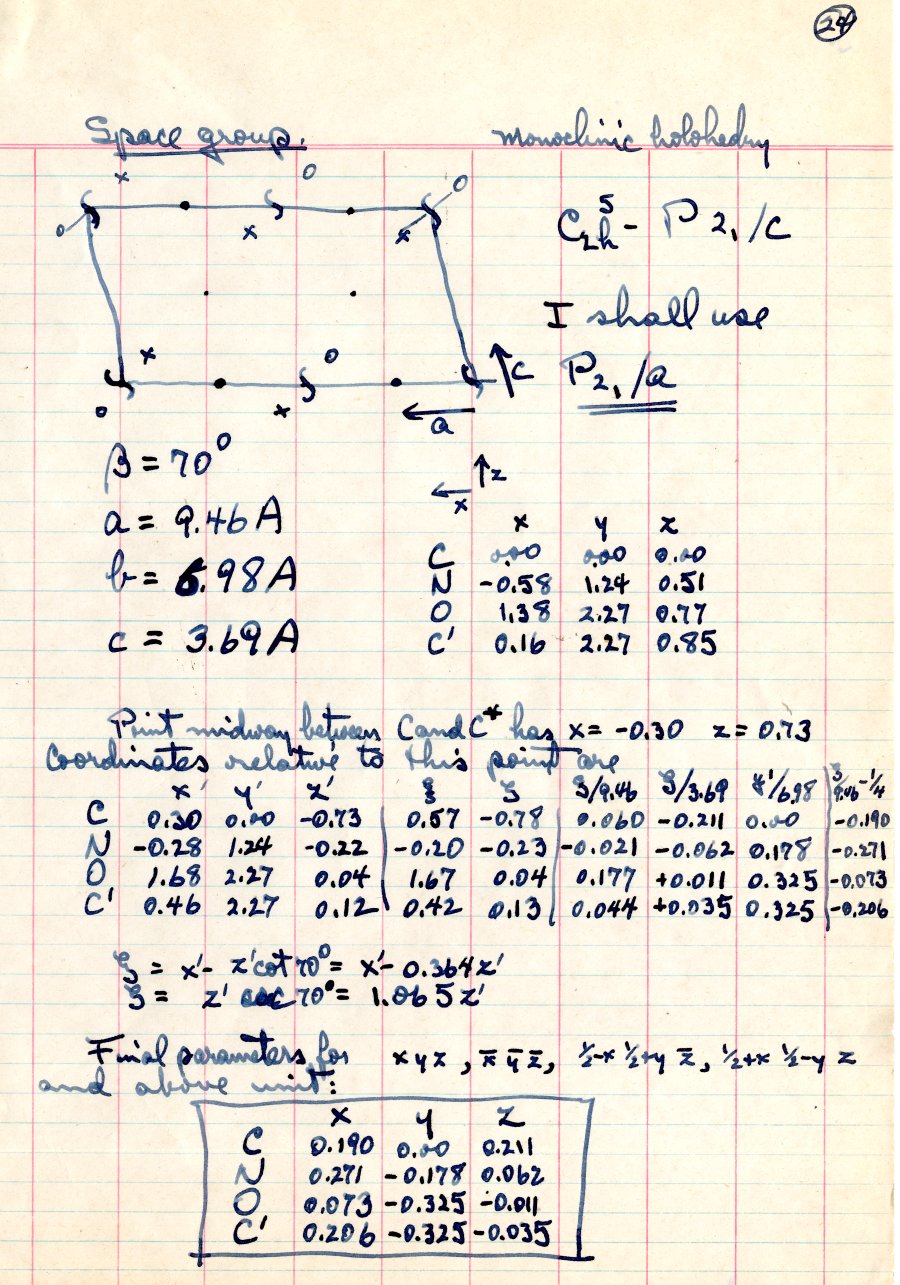 24
Space group. monoclinic holohedry
C⁵₂h - P 2₁/c
I shall use
P2₁/a
c
a
β = 70°
z
x
a = 9.46 A
b = 6.98 A
c = 3.69 A
x y z
C 0.00 0.00 0.00
N -0.58 1.24 0.51
O 1.38 2.27 0.77
C' 0.16 2.27 0.85
Point midway between C and C* has x = -0.30 z = 0.73
Coordinates relative to this point are
x' y' z' ξ ζ ξ/9.46 ζ/3.69 y'/6.98 ξ/9.46 - 1/4
C 0.30 0.00 -0.73 0.57 -0.78 0.060 -0.211 0.00 -0.190
N -0.28 1.24 -0.22 -0.20 -0.23 -0.021 -0.062 0.178 -0.271
O 1.68 2.27 0.04 1.67 0.04 0.177 +0.011 0.325 -0.073
C' 0.46 2.27 0.12 0.42 0.13 0.044 +0.035 0.325 -0.206
ξ = x' - z' cot 70° = x' - 0.364 z'
ζ = z' csc 70° = 1.065 z'
Final parameters, for x y z, x̄ ȳ z̄, ½-x ½+y z̄, ½+x ½-y z
and above unit:
x y z
C 0.190 0.00 0.211
N 0.271 -0.178 0.062
O 0.073 -0.325 -0.011
C' 0.206 -0.325 -0.035